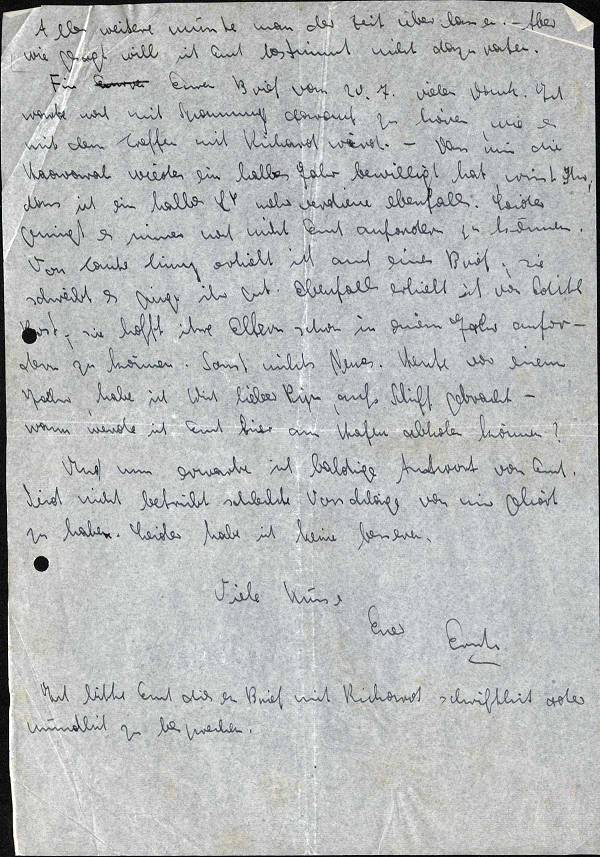 Alles weitere müsste man der Zeit überlassen. – Aber
wie gesagt will ich Euch bestimmt nicht dazu raten.
Für Euren Brief vom 20.7. vielen Dank. Ich
warte nun mit Spannung darauf zu hören, wie es
mit dem Treffen mit Richard wird. – Dass mir die
wieder ein halbes Jahr bewilligt hat, wisst Ihr,
dass ich ein halbes £ mehr verdiene ebenfalls. Leider
genügt es immer noch nicht Euch anfordern zu können.
Von Tante erhielt ich auch einen Brief, sie
schreibt es ginge ihr gut. Ebenfalls erhielt ich von Edith
Post, sie hofft ihre Eltern schon in einem Jahr anfor-
dern zu können. Sonst nichts Neues. Heute vor einem
Jahr habe ich Dich lieber aufs Schiff gebracht –
wann werde ich Euch hier am Hafen abholen können?
Und nun erwarte ich baldige Antwort von Euch.
Seid nicht betrübt schlechte Vorschläge von mir gehört
zu haben. Leider habe ich keine besseren.
Viele Küsse
Euer
Ich bitte Euch diesen Brief mit Richard schriftlich oder
mündlich zu besprechen.